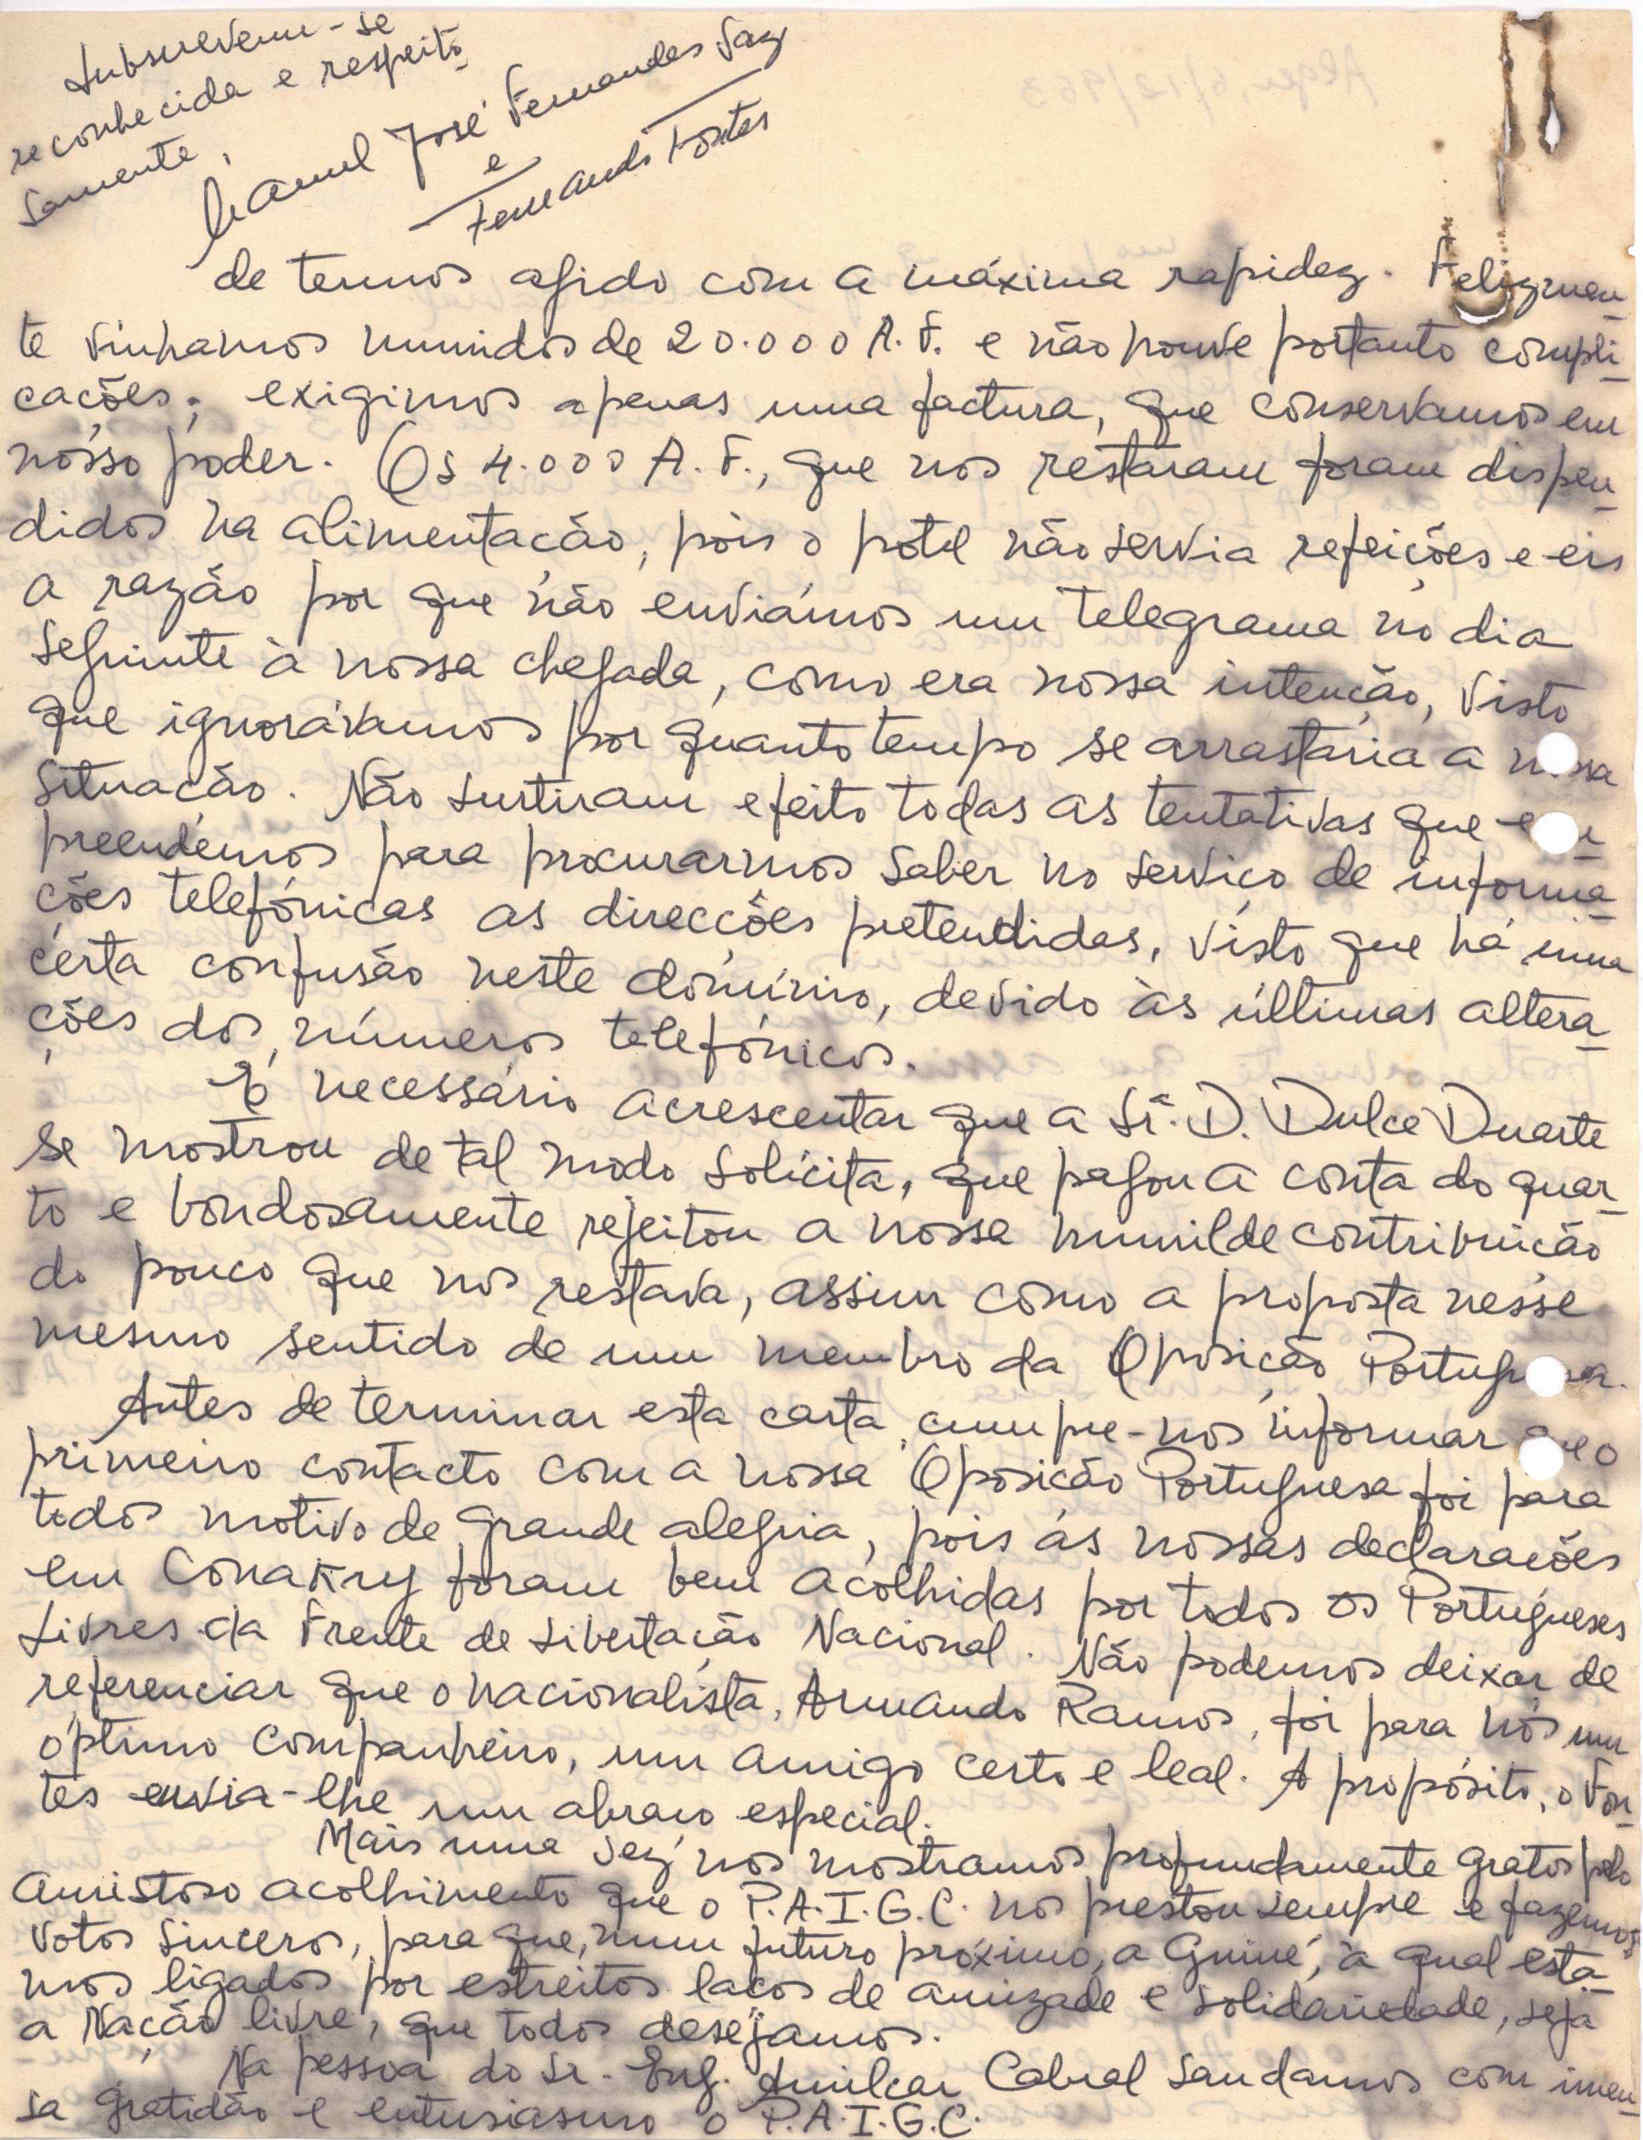 Subscrevem-se
reconhecida e respeito
samente,
Manuel José Fernandes Vaz
e
Fernando Fontes
de termos agido com a máxima rapidez. Felizmen_
te vinhamos munidos de 20.000 A.F. e não houve portanto compli_
cações; exigimos apenas uma factura, que conservamos em
nosso poder. Os 4.000 A.F., que nos restaram foram dispen_
didos na alimentação, pois o hotel não servia refeições e eis
a razão por que não enviámos um telegrama no dia
seguinte à nossa chegada, como era nossa intenção, visto
que ignorávamos por quanto tempo se arrastaria a nossa
situação. Não surtiram efeito todas as tentativas que em_
preendemos para procurarmos saber no serviço de informa_
ções telefónicas as direcções pretendidas, visto que há uma
certa confusão neste domínio, devido às últimas altera_
ções dos números telefónicos.
É necessário acrescentar que a Srª. D. Dulce Duarte
se mostrou de tal modo solícita, que pagou a conta do quar_
to e bondosamente rejeitou a nossa humilde contribuição
do pouco que nos restava, assim como a proposta nesse
mesmo sentido de um membro da Oposição Portuguesa.
Antes de terminar esta carta, cumpre-nos informar que o
primeiro contacto com a nossa Oposição Portuguesa foi para
todos motivo de grande alegria, pois as nossas declarações
em Conakry foram bem acolhidas por todos os Portugueses
Livres da Frente de Libertação Nacional. Não podemos deixar de
referenciar que o nacionalista, Armando Ramos, foi para nós um
óptimo companheiro, um amigo certo e leal. A propósito, o Fon_
tes envia-lhe um abraço especial.
Mais uma vez nos mostramos profundamente gratos pelo
amistoso acolhimento que o P.A.I.G.C. nos prestou sempre e fazemos
votos sinceros, para que, num futuro próximo, a Guiné, à qual esta_
mos ligados por estreitos laços de amizade e solidariedade, seja
a Nação livre, que todos desejamos.
Na pessoa do Sr. Eng. Amilcar Cabral saudamos com imen_
sa gratidão e entusiasmo o P.A.I.G.C.